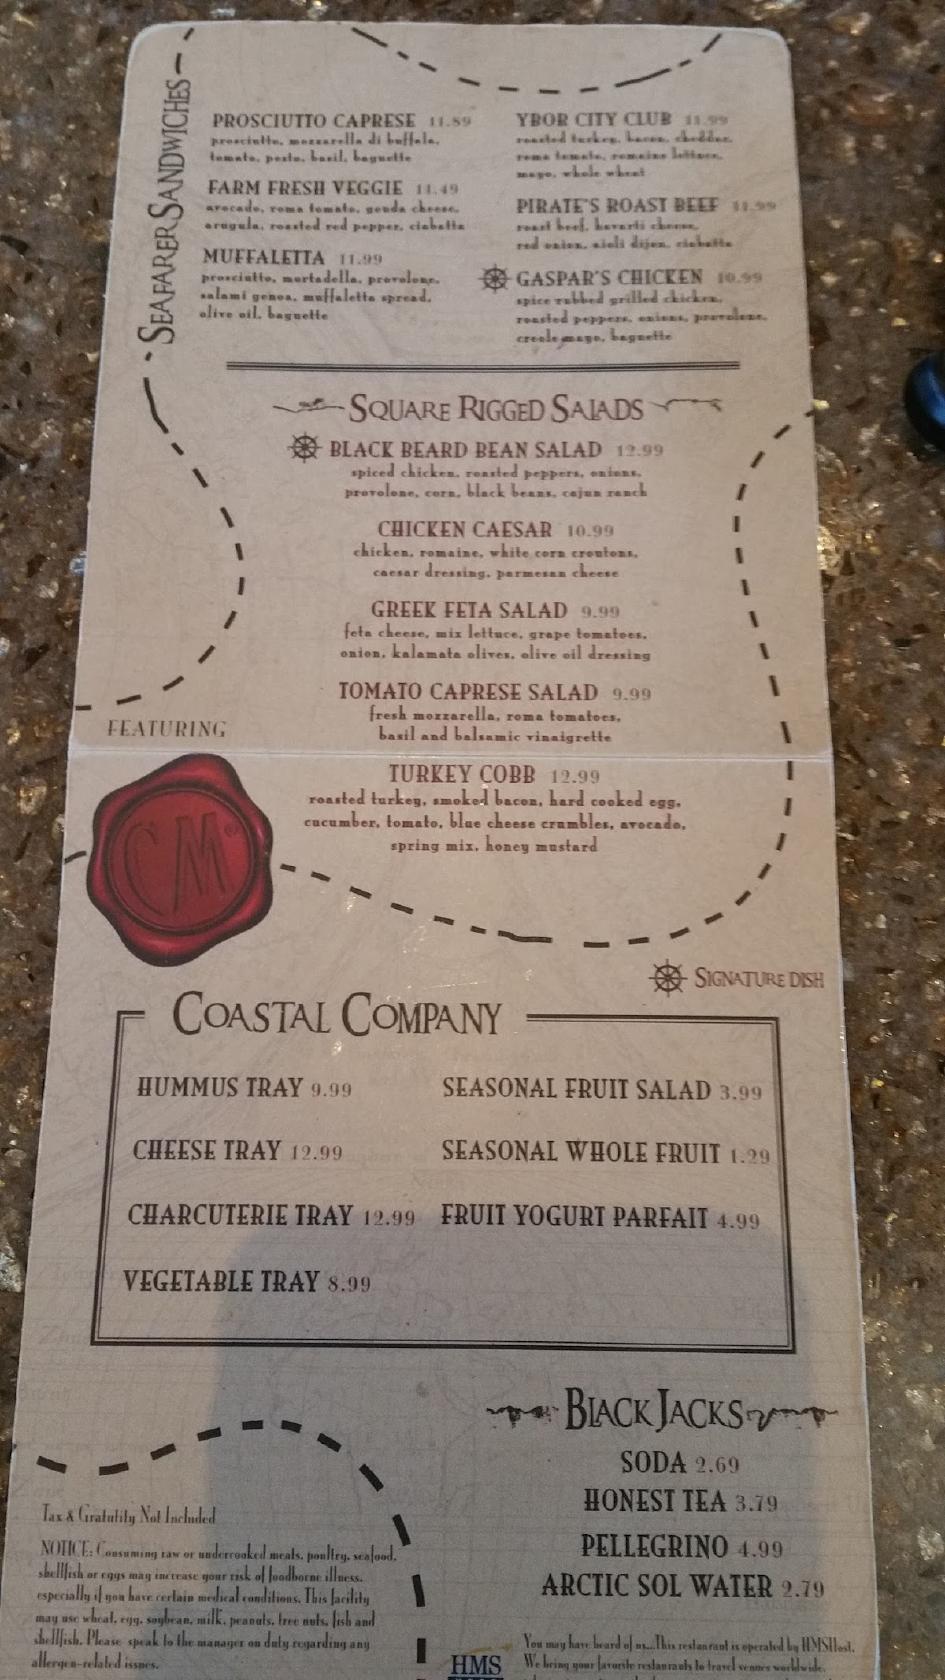 SEAFARER SANDWICHES
PROSCIUTTO CAPRESE 11.89
prosciutto, mozzarella di buffala,
tomato, pesto, basil, baguette
FARM FRESH VEGGIE 11.49
avocado, roma tomato, gouda cheese,
arugula, roasted red pepper, ciabatta
MUFFALETTA 11.99
prosciutto, mortadella, provolone,
salami genoa, muffaletta spread,
olive oil, baguette
YBOR CITY CLUB 11.99
roasted turkey, bacon, cheddar,
roma tomato, romaine lettuce,
mayo, whole wheat
PIRATE'S ROAST BEEF 11.99
roast beef, havarti cheese,
red onion, aioli dijon, ciabatta
GASPAR'S CHICKEN 10.99
spice rubbed grilled chicken,
roasted peppers, onions, provolone,
creole mayo, baguette
SQUARE RIGGED SALADS
BLACK BEARD BEAN SALAD 12.99
spiced chicken, roasted peppers, onions,
provolone, corn, black beans, cajun ranch
CHICKEN CAESAR 10.99
chicken, romaine, white corn croutons,
caesar dressing, parmesan cheese
GREEK FETA SALAD 9.99
feta cheese, mix lettuce, grape tomatoes,
onion, kalamata olives, olive oil dressing
TOMATO CAPRESE SALAD 9.99
fresh mozzarella, roma tomatoes,
basil and balsamic vinaigrette
TURKEY COBB 12.99
roasted turkey, smoked bacon, hard cooked egg,
cucumber, tomato, blue cheese crumbles, avocado,
spring mix, honey mustard
FEATURING
CM®
SIGNATURE DISH
COASTAL COMPANY
HUMMUS TRAY 9.99
CHEESE TRAY 12.99
CHARCUTERIE TRAY 12.99
VEGETABLE TRAY 8.99
SEASONAL FRUIT SALAD 3.99
SEASONAL WHOLE FRUIT 1.29
FRUIT YOGURT PARFAIT 4.99
BLACK JACKS
SODA 2.69
HONEST TEA 3.79
PELLEGRINO 4.99
ARCTIC SOL WATER 2.79
Tax & Gratutity Not Included
NOTICE: Consuming raw or undercooked meats, poultry, seafood,
shellfish or eggs may increase your risk of foodborne illness,
especially if you have certain medical conditions. This facility
may use wheat, egg, soybean, milk, peanuts, tree nuts, fish and
shellfish. Please speak to the manager on duty regarding any
allergen-related issues.
HMS
You may have heard of us...This restaurant is operated by HMSHost.
We bring your favorite restaurants to travel venues worldwide,